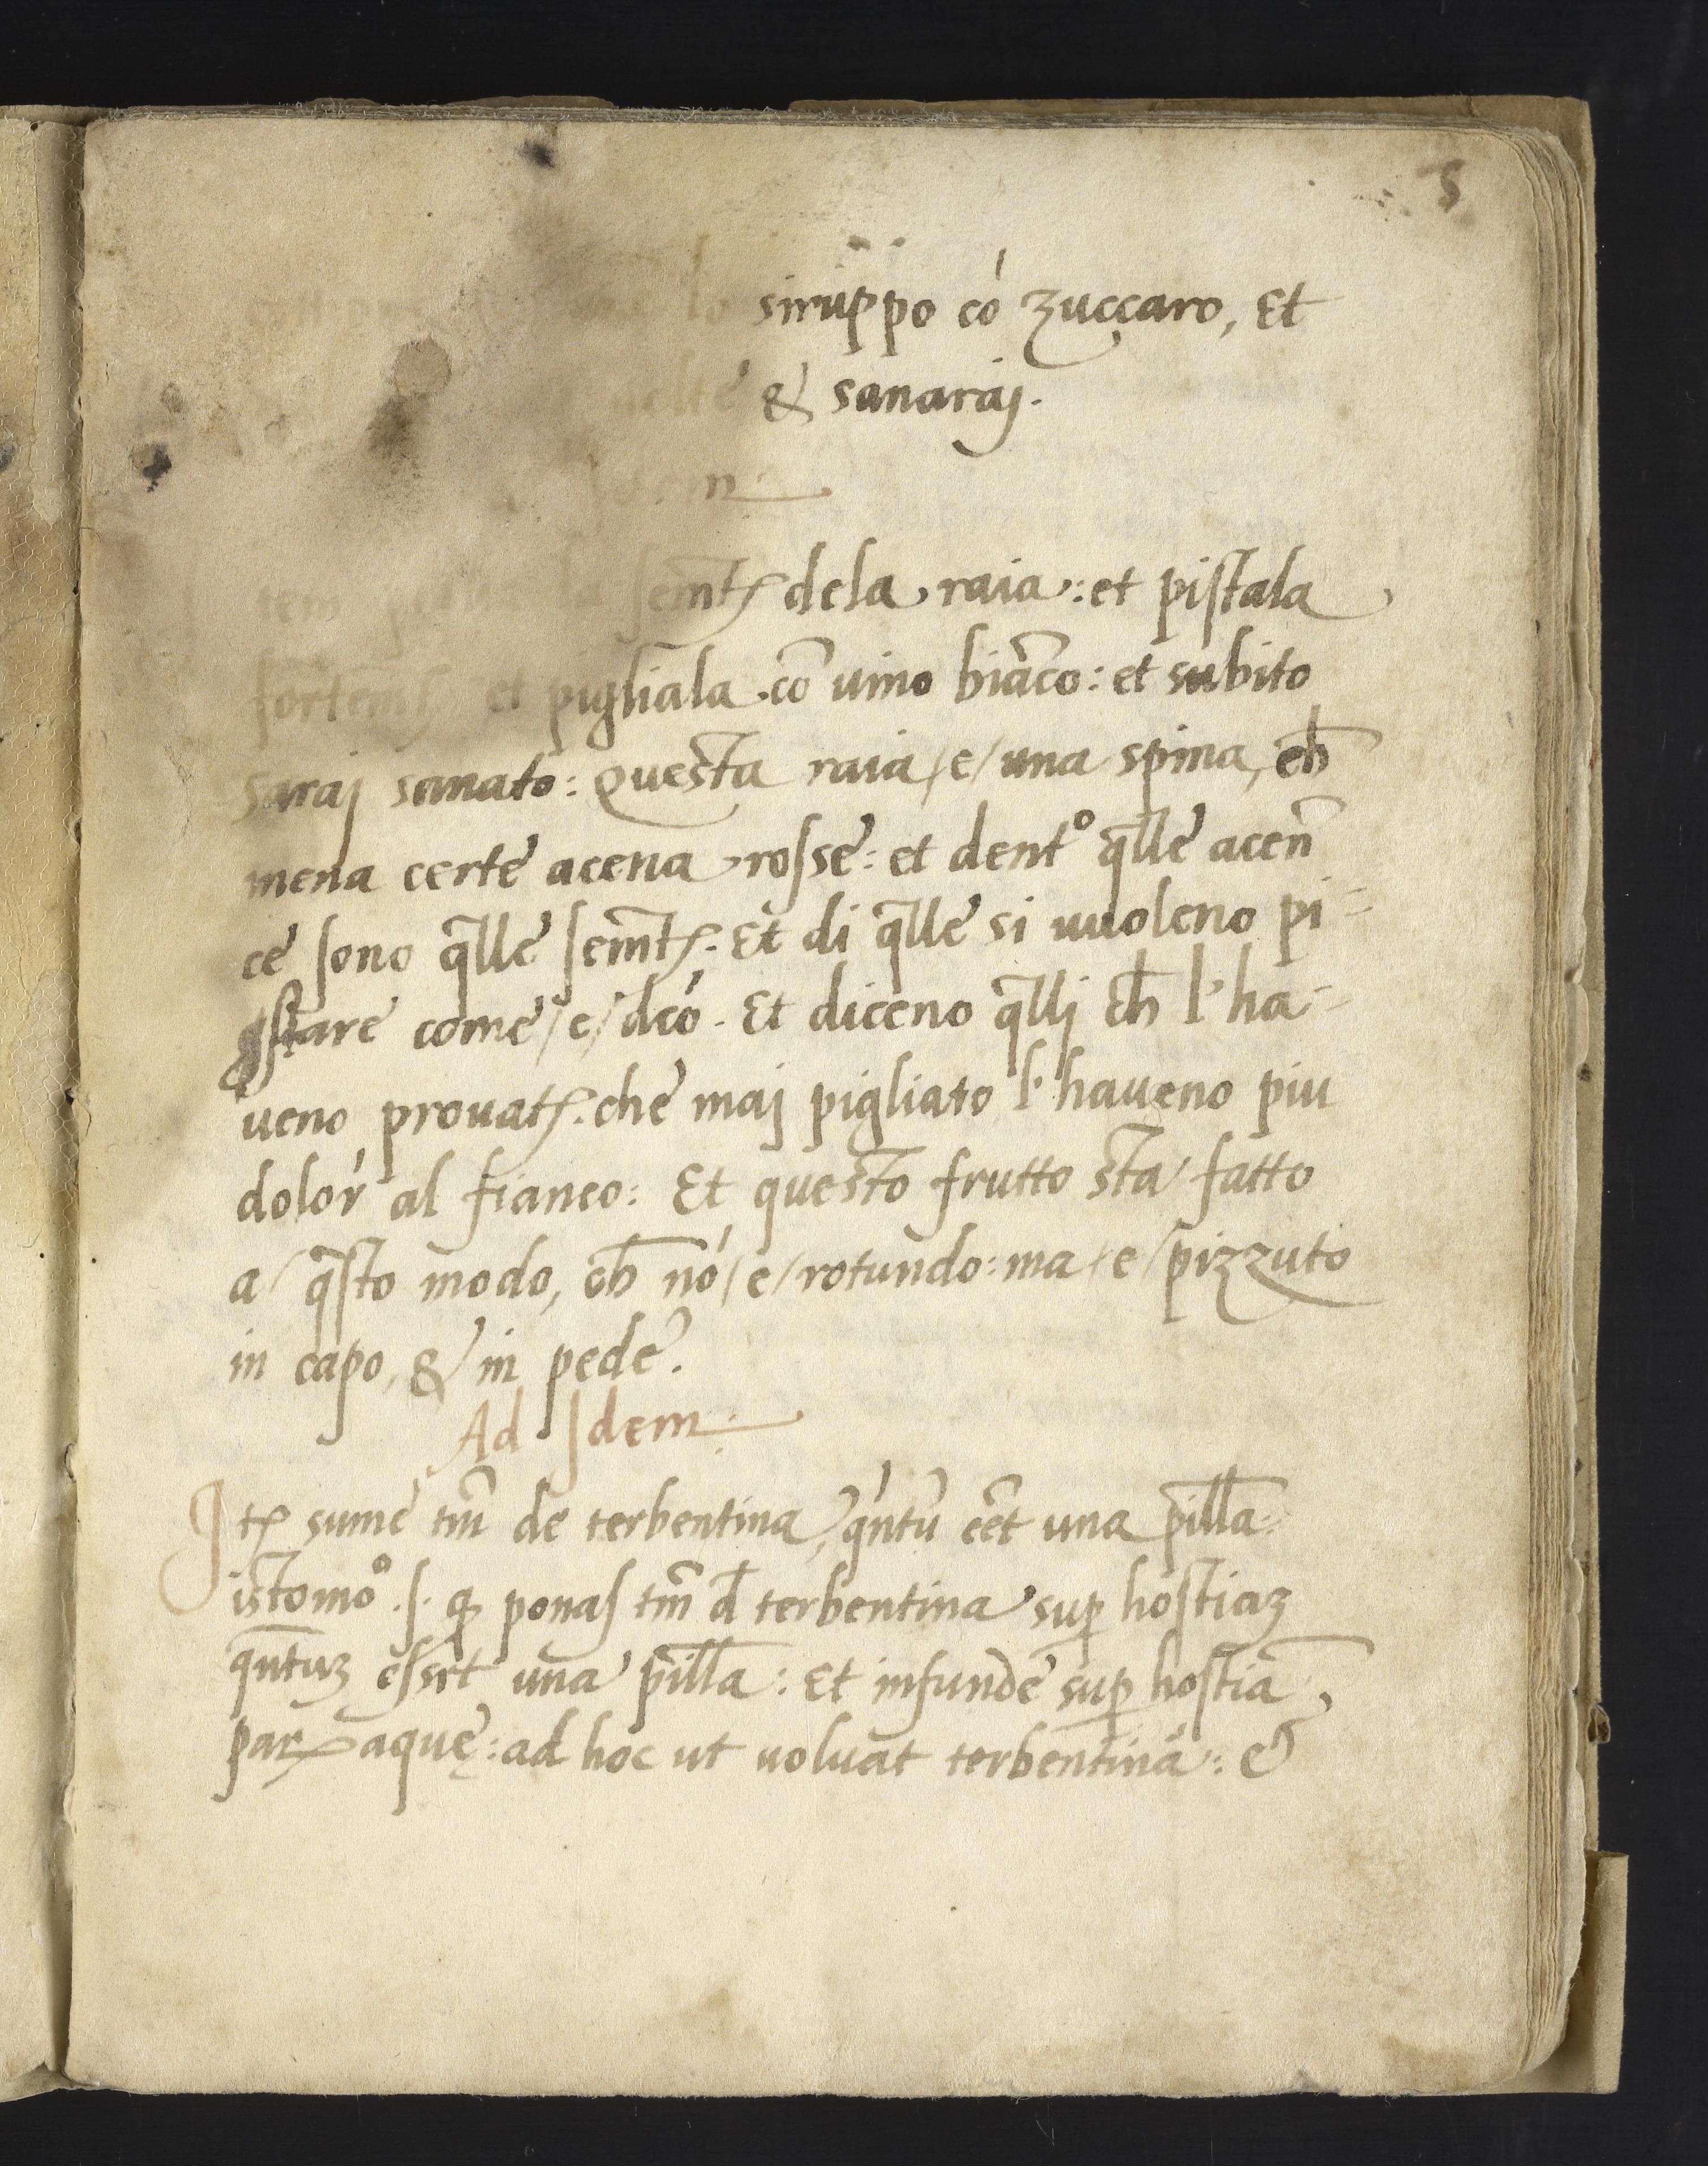 5
lo siruppo có zuccaro, Et
& sanaraj.
semtꝭ dela raia: et pistala
fortemtꝭ et pigliala cō uino biāco: et subito
saraj sanato: Questa raia /e/ una spina, ch̄
mena certe acena rosse: et dentº q̄lle acen̄
ce sono q̄lle semtꝭ. Et di q̄lle si uuoleno pi=
gliare come /e/ dcó. Et diceno q̄llj ch̄ l'ha=
ueno prouatꝭ. che maj pigliato l'haueno piu
dolor al fianco: Et questo frutto sta fatto
a q̄sto modo, ch̄ nó /e/ rotundo: ma /e/ pizzuto
in capo, & in pede.
Ad Idem
Itꝭ sume tm̄ de terbentina, q́ntū ēēt una pilla
istomº .s. ꝙ ponas tm̄ d̄ terbentina suꝑ hostiaꝫ
qn̄tuꝫ essꝫt una pilla: Et infunde suꝑ hostiā
parꝝ aquę: ad hoc ut uoluat terbentinā: &